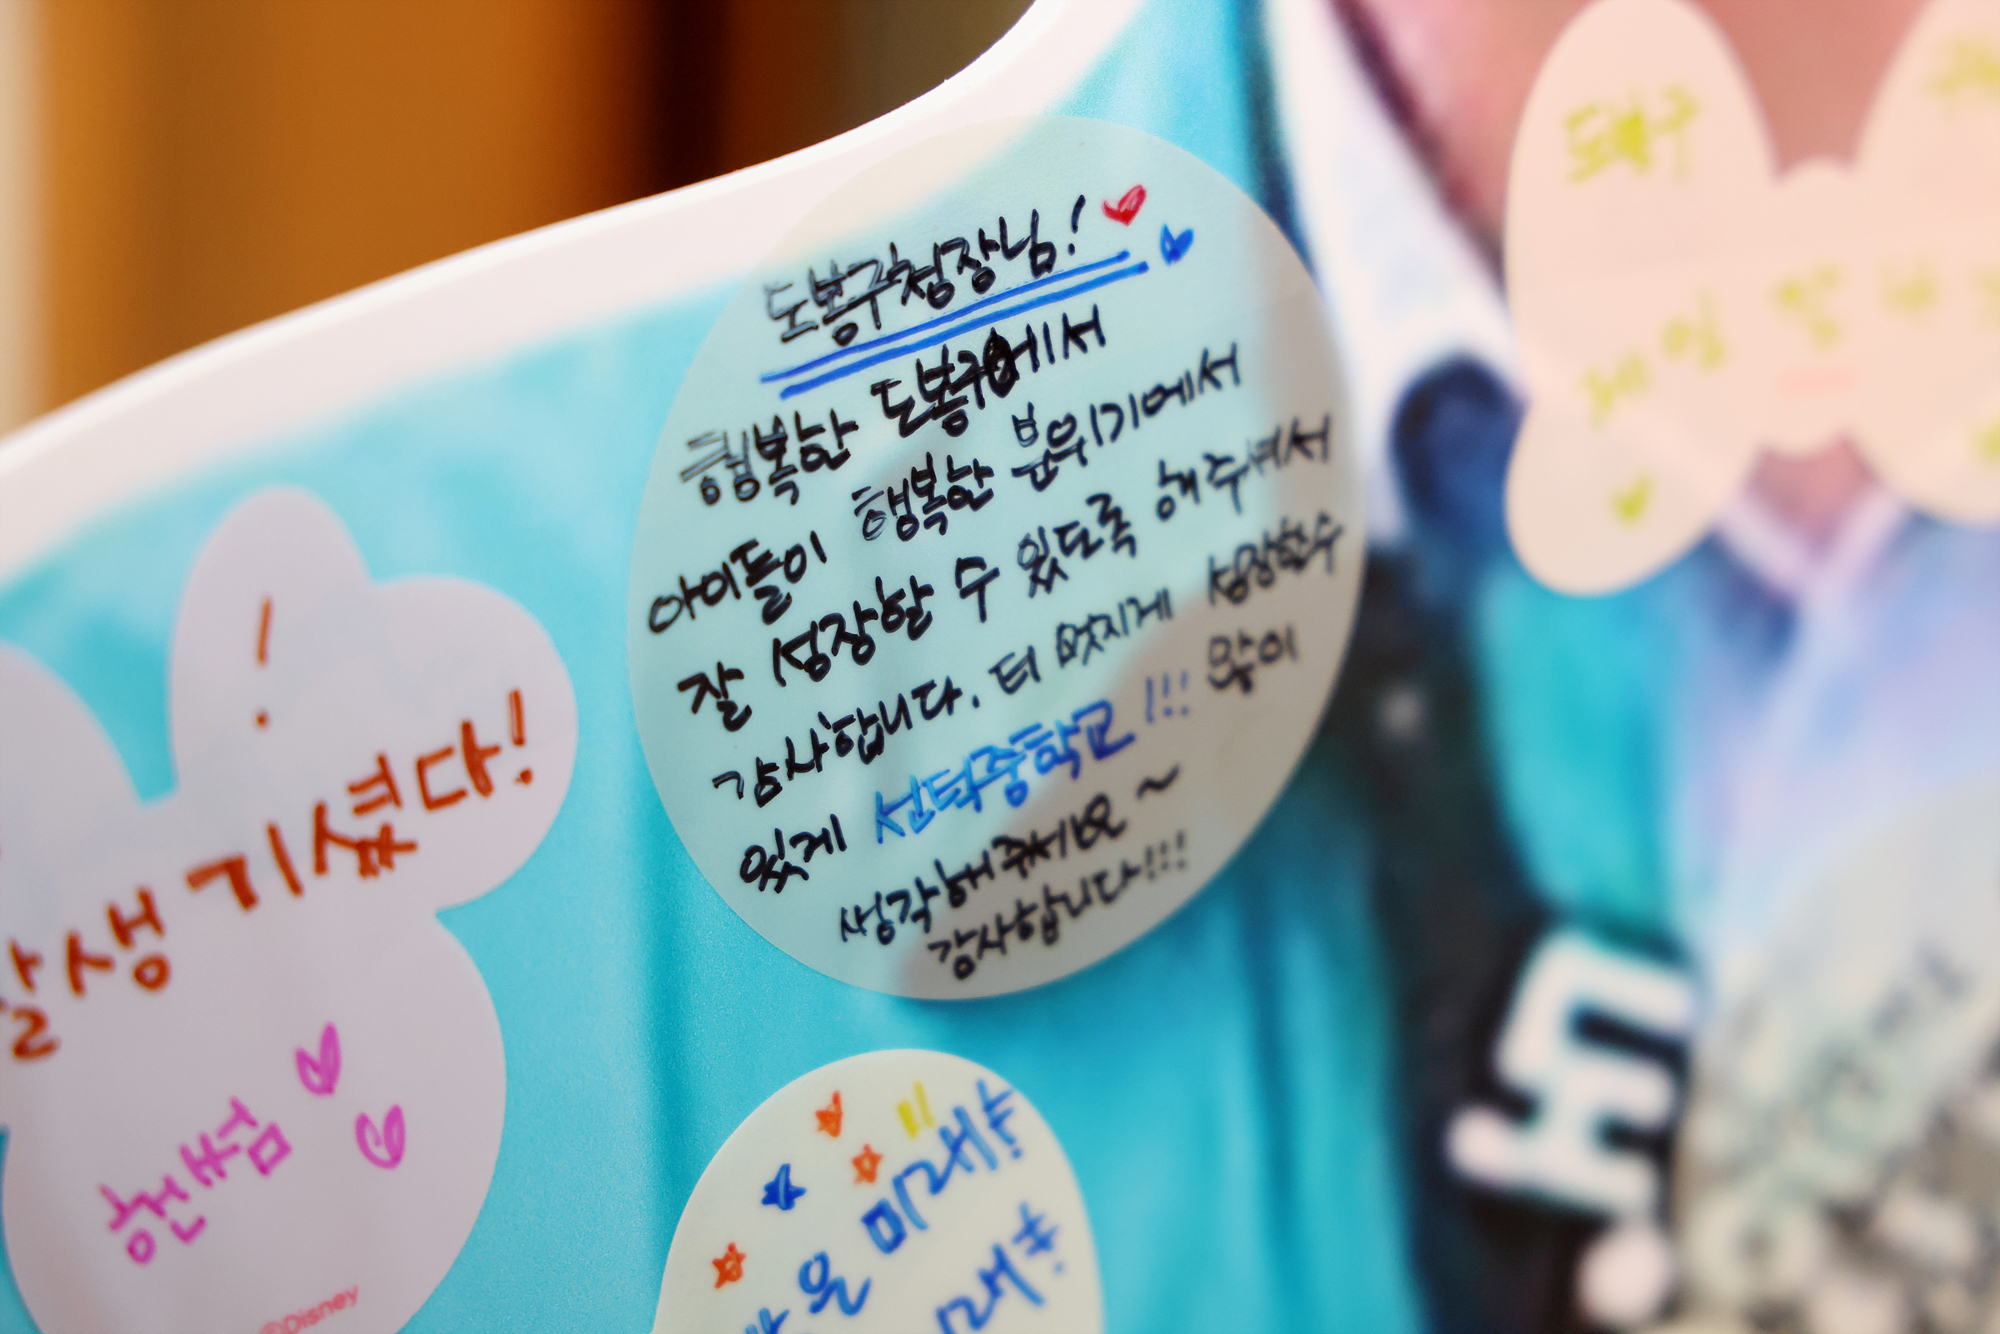 도봉구청장님!
행복한 도봉구에서
아이들이 행복한 분위기에서
잘 성장할 수 있도록 해주셔서
감사합니다. 더 멋지게 성장할수
있게 선덕중학교!!! 많이
생각해주세요~
감사합니다!!!
!
잘생기셨다!
핸썸
©Disney
은 미래를
도봉구
제일 잘